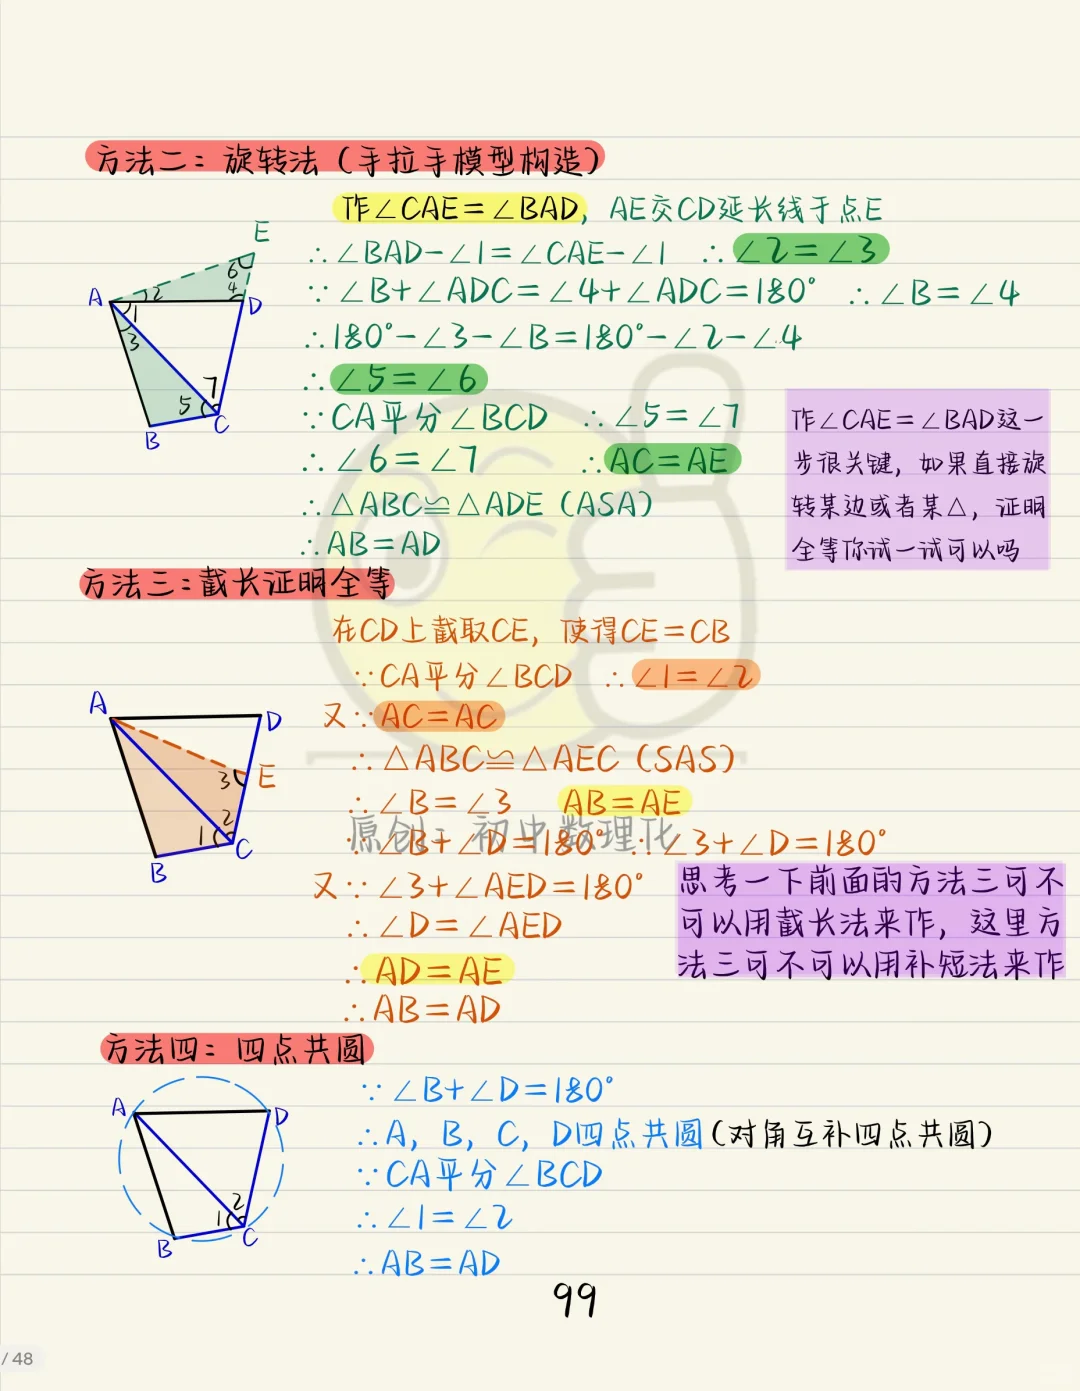 方法二：旋转法（手拉手模型构造）
作∠CAE=∠BAD，AE交CD延长线于点E
∴∠BAD-∠1=∠CAE-∠1 ∴∠2=∠3
∵∠B+∠ADC=∠4+∠ADC=180° ∴∠B=∠4
∴180°-∠3-∠B=180°-∠2-∠4
∴∠5=∠6
∵CA平分∠BCD ∴∠5=∠7
∴∠6=∠7 ∴AC=AE
∴△ABC≌△ADE（ASA）
∴AB=AD
E
6
4
A
2
D
1
3
7
5
C
B
作∠CAE=∠BAD这一
步很关键，如果直接旋
转某边或者某△，证明
全等你试一试可以吗
方法三：截长证明全等
在CD上截取CE，使得CE=CB
∵CA平分∠BCD ∴∠1=∠2
又∵AC=AC
∴△ABC≌△AEC（SAS）
∴∠B=∠3 AB=AE
∵∠B+∠D=180° ∴∠3+∠D=180°
又∵∠3+∠AED=180°
∴∠D=∠AED
∴AD=AE
∴AB=AD
A
D
3
E
2
1
C
B
原创：初中数理化
思考一下前面的方法三可不
可以用截长法来作，这里方
法三可不可以用补短法来作
方法四：四点共圆
∵∠B+∠D=180°
∴A，B，C，D四点共圆（对角互补四点共圆）
∵CA平分∠BCD
∴∠1=∠2
∴AB=AD
A
D
2
1
C
B
99
/ 48